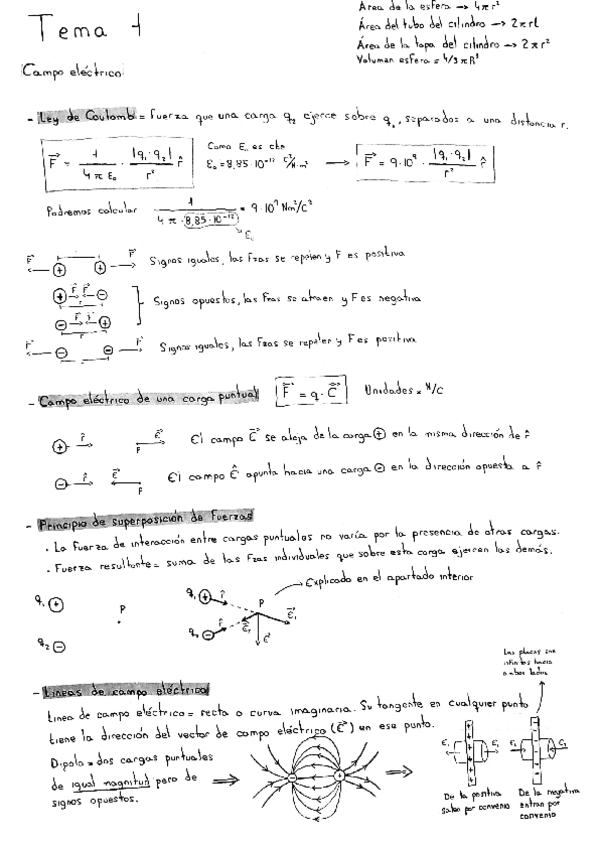 Tema 1
Área de la esfera → 4πr²
Área del tubo del cilindro → 2πrl
Área de la tapa del cilindro → 2πr²
Volumen esfera = 4/3 πR³
Campo eléctrico:
- Ley de Coulomb = fuerza que una carga q₂ ejerce sobre q₁, separados a una distancia r.
F = 1 / 4πε₀ · |q₁·q₂| / r² r̂
Como ε₀ es cte
ε₀ = 8,85·10⁻¹² C²/N·m²
→ F = 9·10⁹ · |q₁·q₂| / r² r̂
Podremos calcular 1 / 4π·8,85·10⁻¹² = 9·10⁹ Nm²/C²
ε₀
Signos iguales, las Fzas se repelen y F es positiva
Signos opuestos, las Fzas se atraen y F es negativa
Signos iguales, las Fzas se repelen y F es positiva
- Campo eléctrico de una carga puntual F = q · E Unidades = N/C
El campo E se aleja de la carga ⊕ en la misma dirección de r̂
El campo E apunta hacia una carga ⊖ en la dirección opuesta a r̂
- Principio de superposición de fuerzas
· La fuerza de interacción entre cargas puntuales no varía por la presencia de otras cargas.
· Fuerza resultante = suma de las Fzas individuales que sobre esta carga ejercen las demás.
→ Explicado en el apartado interior
q₁ ⊕ P
q₂ ⊖
q₁ ⊕ r̂ P E₁
q₂ ⊖ r̂ E₂ E
Las placas son
infinitas hacia
ambos lados
- Lineas de campo eléctrico
Linea de campo eléctrico = recta o curva imaginaria. Su tangente en cualquier punto
tiene la dirección del vector de campo eléctrico (E) en ese punto.
Dipolo = dos cargas puntuales
de igual magnitud pero de
signos opuestos.
De la positiva
salen por convenio
De la negativa
entran por
convenio